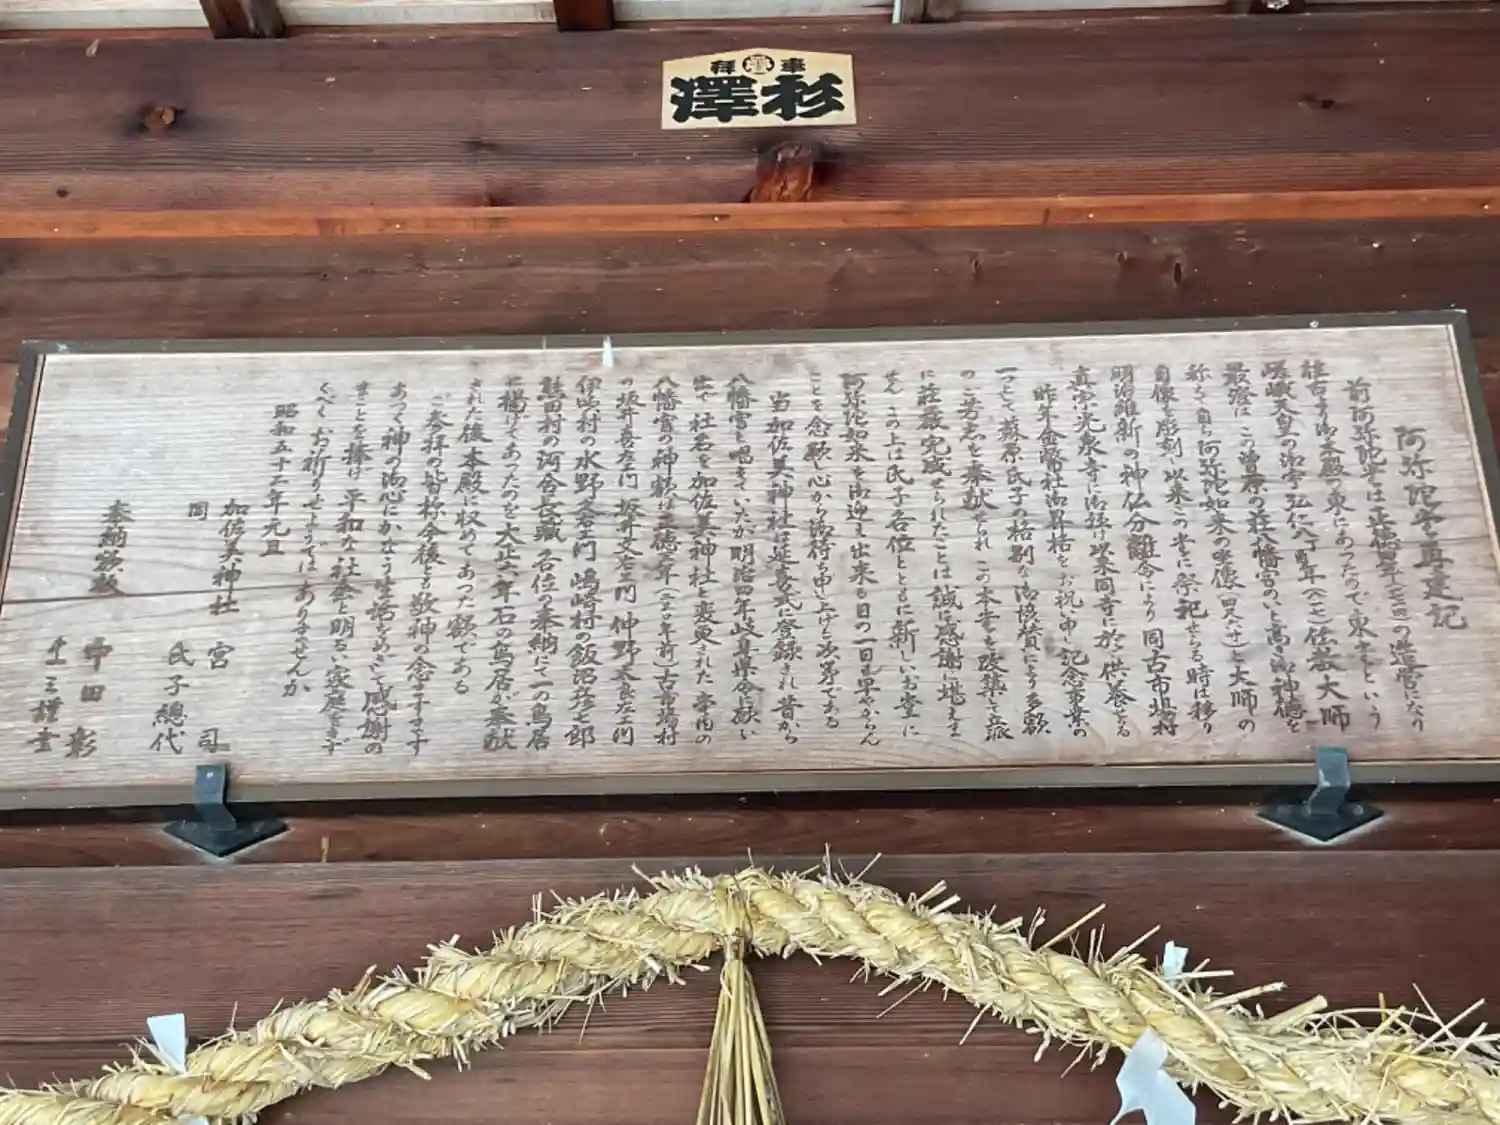 奉拜
杉澤
阿弥陀堂再建記
前阿弥陀堂は正徳四年の造営になり
往古より御本殿の東にあったので東堂という
嵯峨天皇の御宇弘仁八丁酉年(八一七)伝教大師
最澄はこの曽原の荘八幡宮のいと高き御神徳を
称えて自ら阿弥陀如来の坐像と大師の
自像を彫刻し以来この堂に祭祀せらる 時は移り
明治維新の神仏分離令により 同古市場村
真宗光泉寺に御預け以来同寺に於て供養せらる
昨年金幣社御昇格をお祝い申し記念事業の
一つとして蘇原氏子の格別な御協賛により多額
のご芳志を奉献せられ この本堂を改築して立派
に荘厳完成せられたことは誠に感謝に堪えま
せん この上は氏子各位とともに新しいお堂に
阿弥陀如来を御迎え出来る日の一日も早やからん
ことを念願し心から御待ち申し上げる次第である
当加佐美神社は延喜式に登録され 昔から
八幡宮と唱えていたが明治四年岐阜県令に願い
出て 社名を加佐美神社と変更された 堂内の
八幡宮の神額は正徳六年古市場村
の坂井喜左エ門 坂井又右エ門 仲野太良左エ門
伊吹村の水野又右エ門 嶋崎村の飯沼彦七郎
熊田村の河合長蔵 各位の奉納にて一の鳥居
に掲げてあったのを大正六年石の鳥居が奉献
された後 本殿に収めてあった額である
ご参拝の皆称今後とも敬神の念ますます
あつく神の御心にかなう生活をめざして感謝の
まことを捧げ 平和な社会と明るい家庭をきず
くべくお祈りせようではありませんか
昭和五十二年元旦
加佐美神社 宮司
同 氏子総代
奉納額献 中田彰
謹書